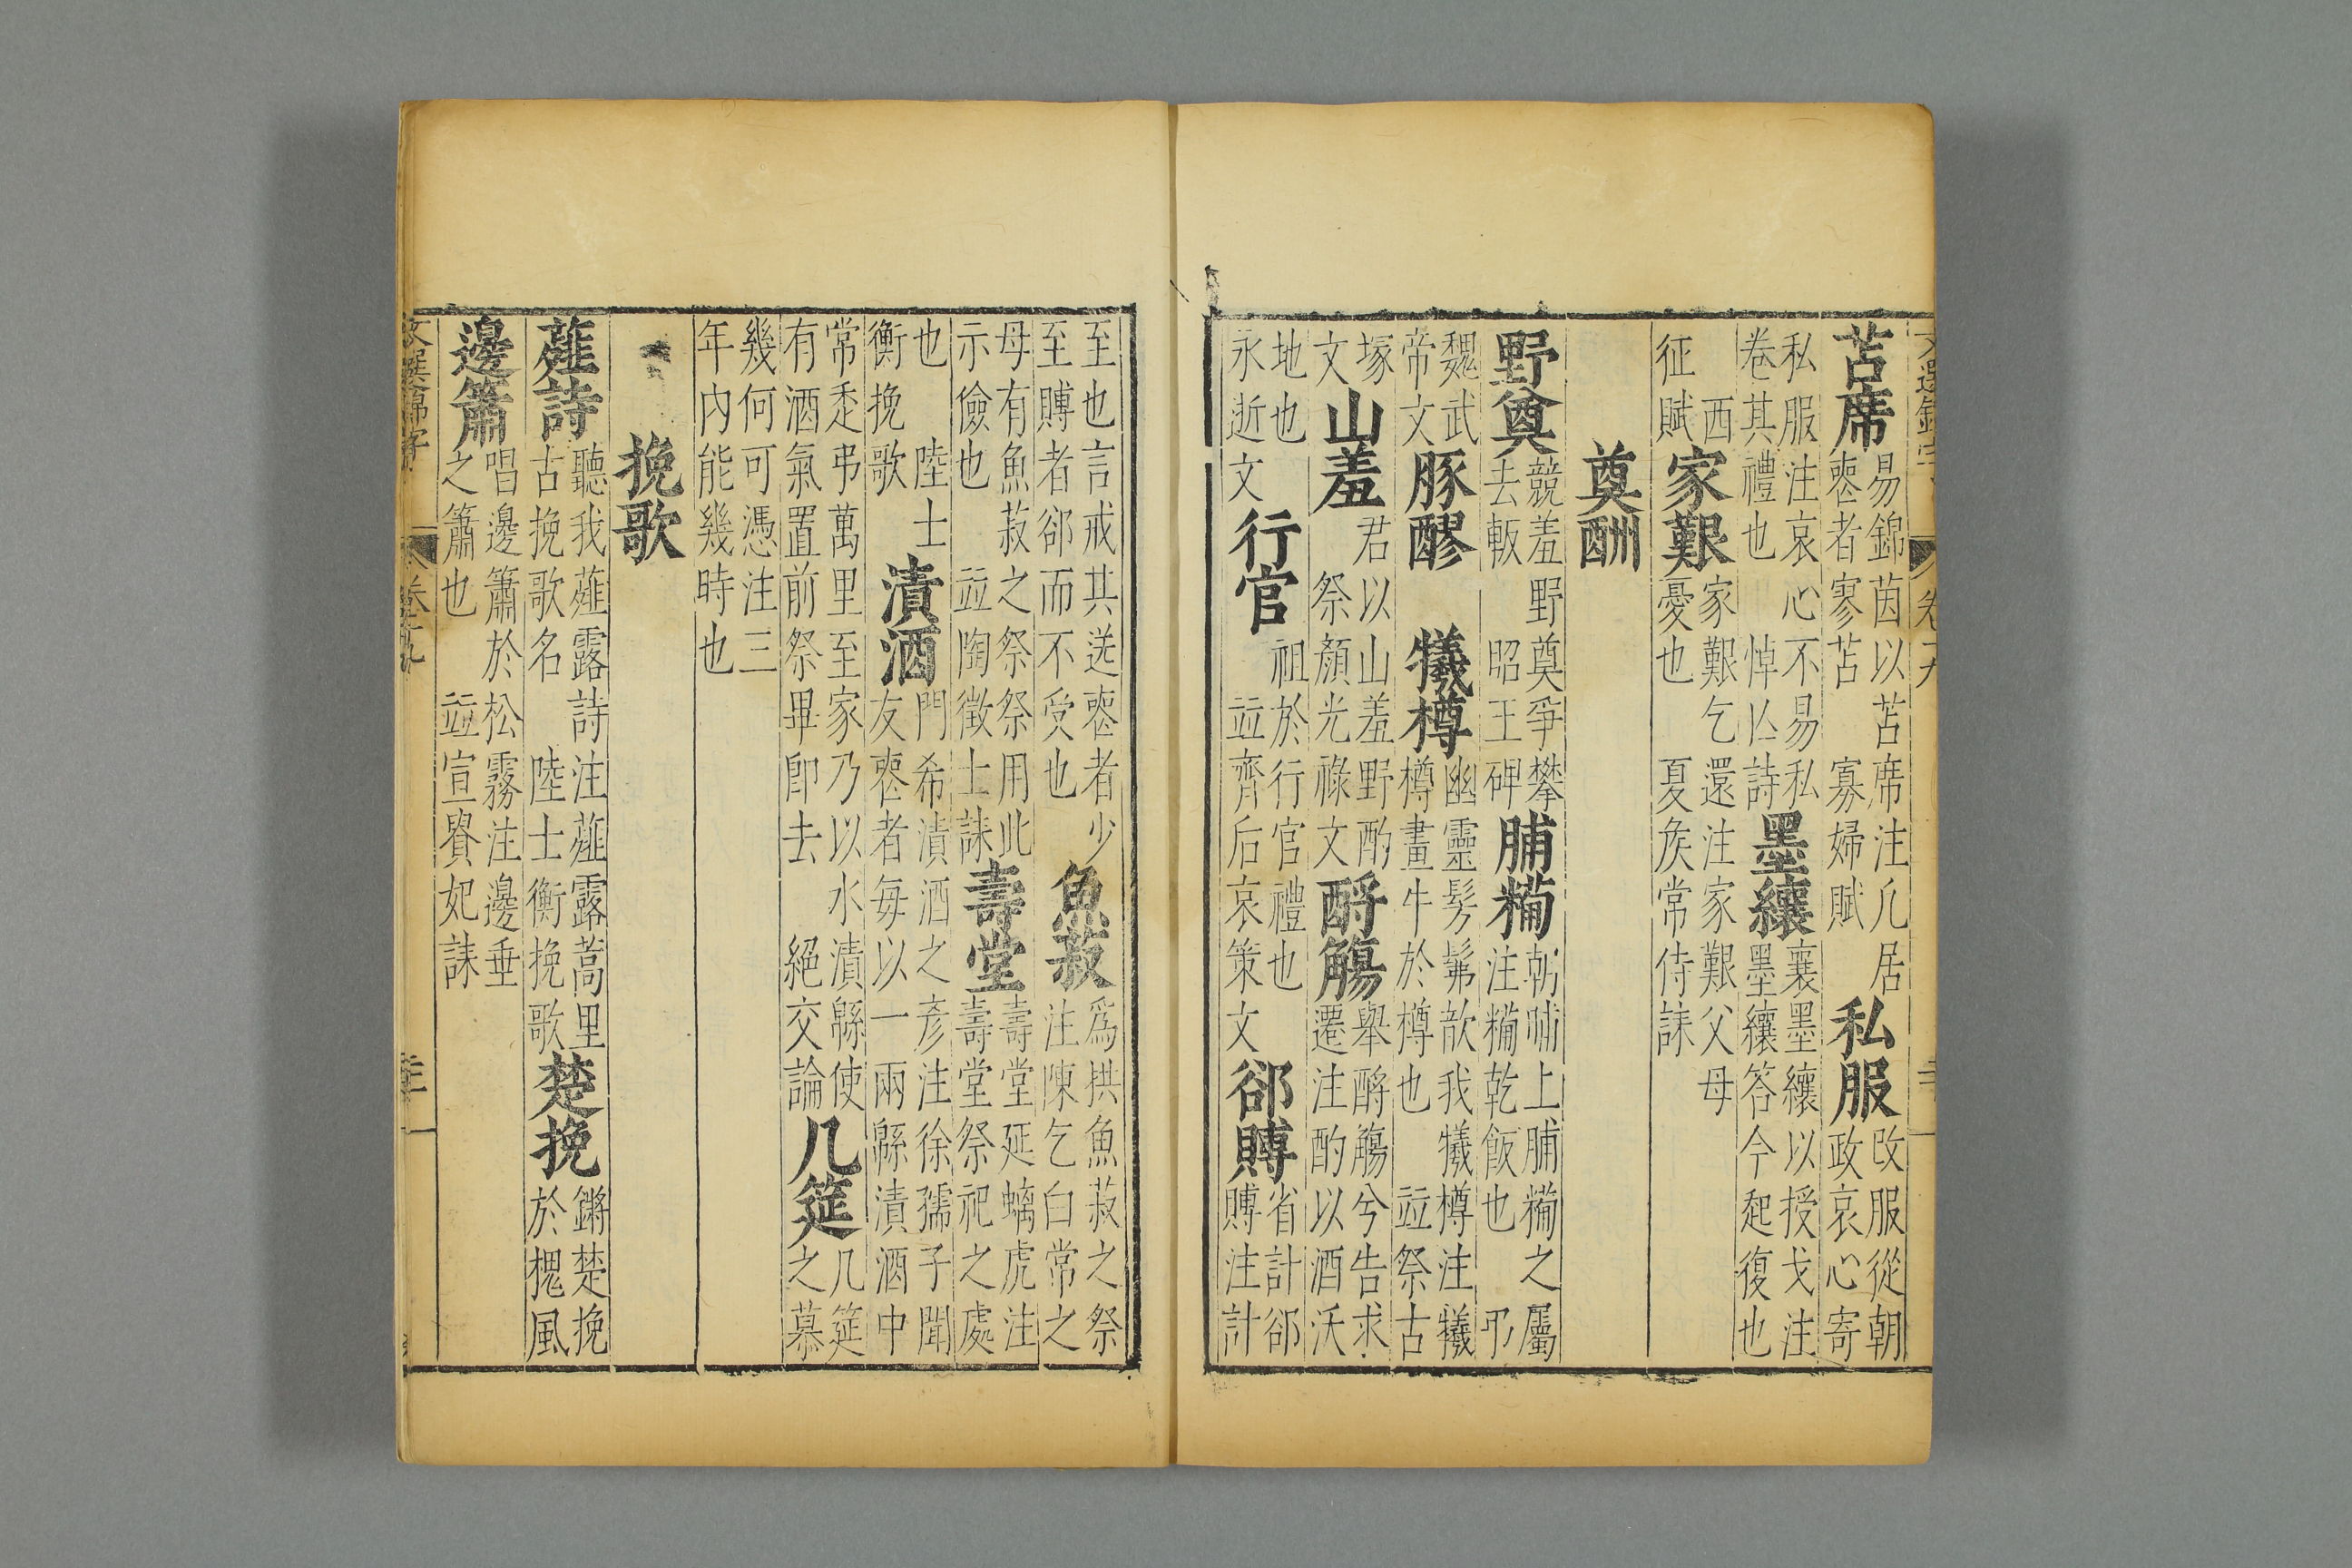 苫席易錦茵以苫席注凡居䘮者寢苫 寡婦賦私服改服從朝政哀心寄
私服注哀心不易私卷其禮也 悼亾詩墨纕襄墨纕以授戈注墨纕答今起復也
西征賦家艱家艱乞還注家艱父母憂也 夏矦常侍誄
奠酬
野奠競羞野奠爭攀去軷 昭王碑脯糒朝晡上脯糒之屬注糒乾飯也 弔
魏武帝文豚醪 犧樽幽靈髣髴歆我犧樽注犧樽畫牛於樽也 竝祭古
塚文山羞君以山羞野酌祭顏光祿文酹觴舉酹觴兮告求遷注酌以酒沃
地也永逝文行官祖於行官禮也竝齊后哀策文郤賻省計郤賻注計
至也言戒其送䘮者少至賻者郤而不受也魚菽爲拱魚菽之祭注陳乞曰常之
母有魚菽之祭祭用此示儉也 竝陶徵士誄壽堂壽堂延螭虎注壽堂祭祀之處
也 陸士衡挽歌漬酒門希漬酒之彥注徐孺子聞友䘮者每以一兩緜漬酒中
常赱弔萬里至家乃以水漬緜使有酒氣置前祭畢卽去 絕交論几筵几筵之慕
幾何可憑注三年內能幾時也
挽歌
薤詩聽我薤露詩注薤露蒿里古挽歌名 陸士衡挽歌楚挽鏘楚挽於槐風
邊簫唱邊簫於松霧注邊垂之簫也 竝宣貴妃誄